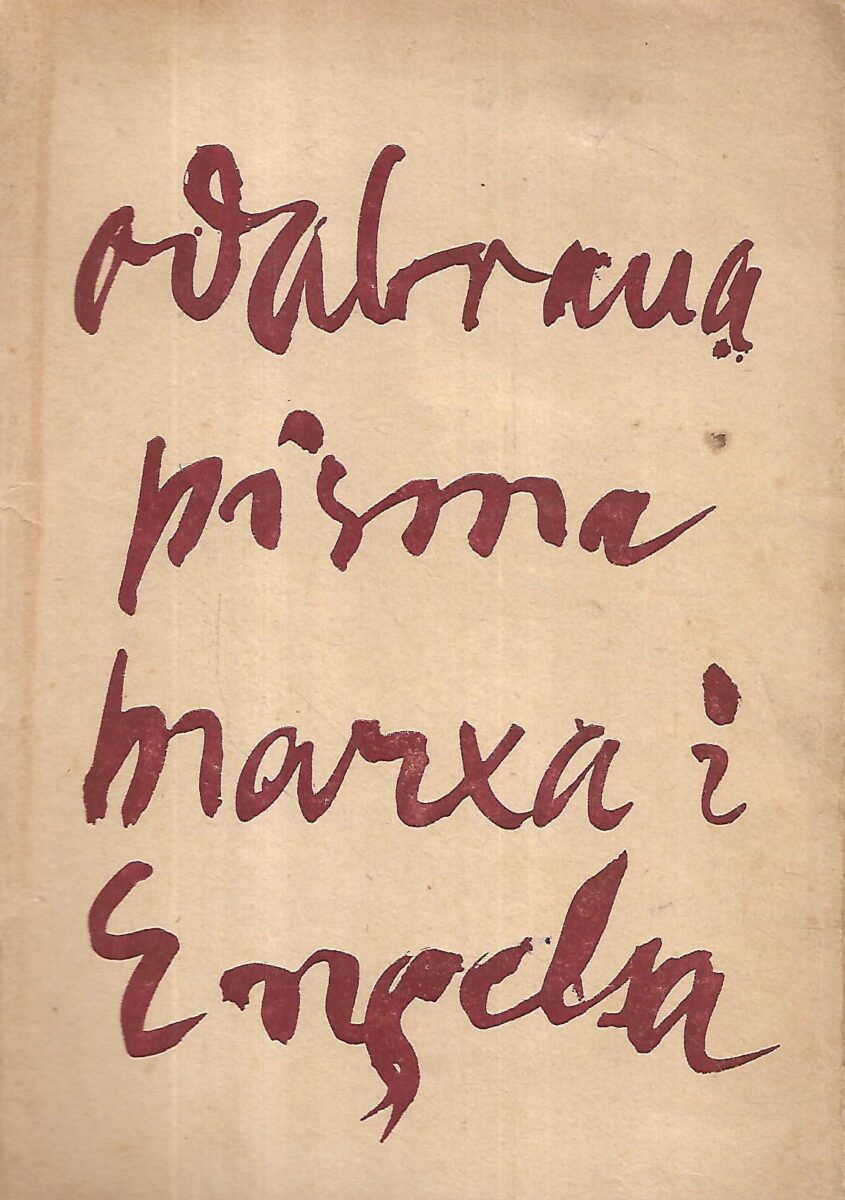 odabrana
pisma
marxa i
Engelsa